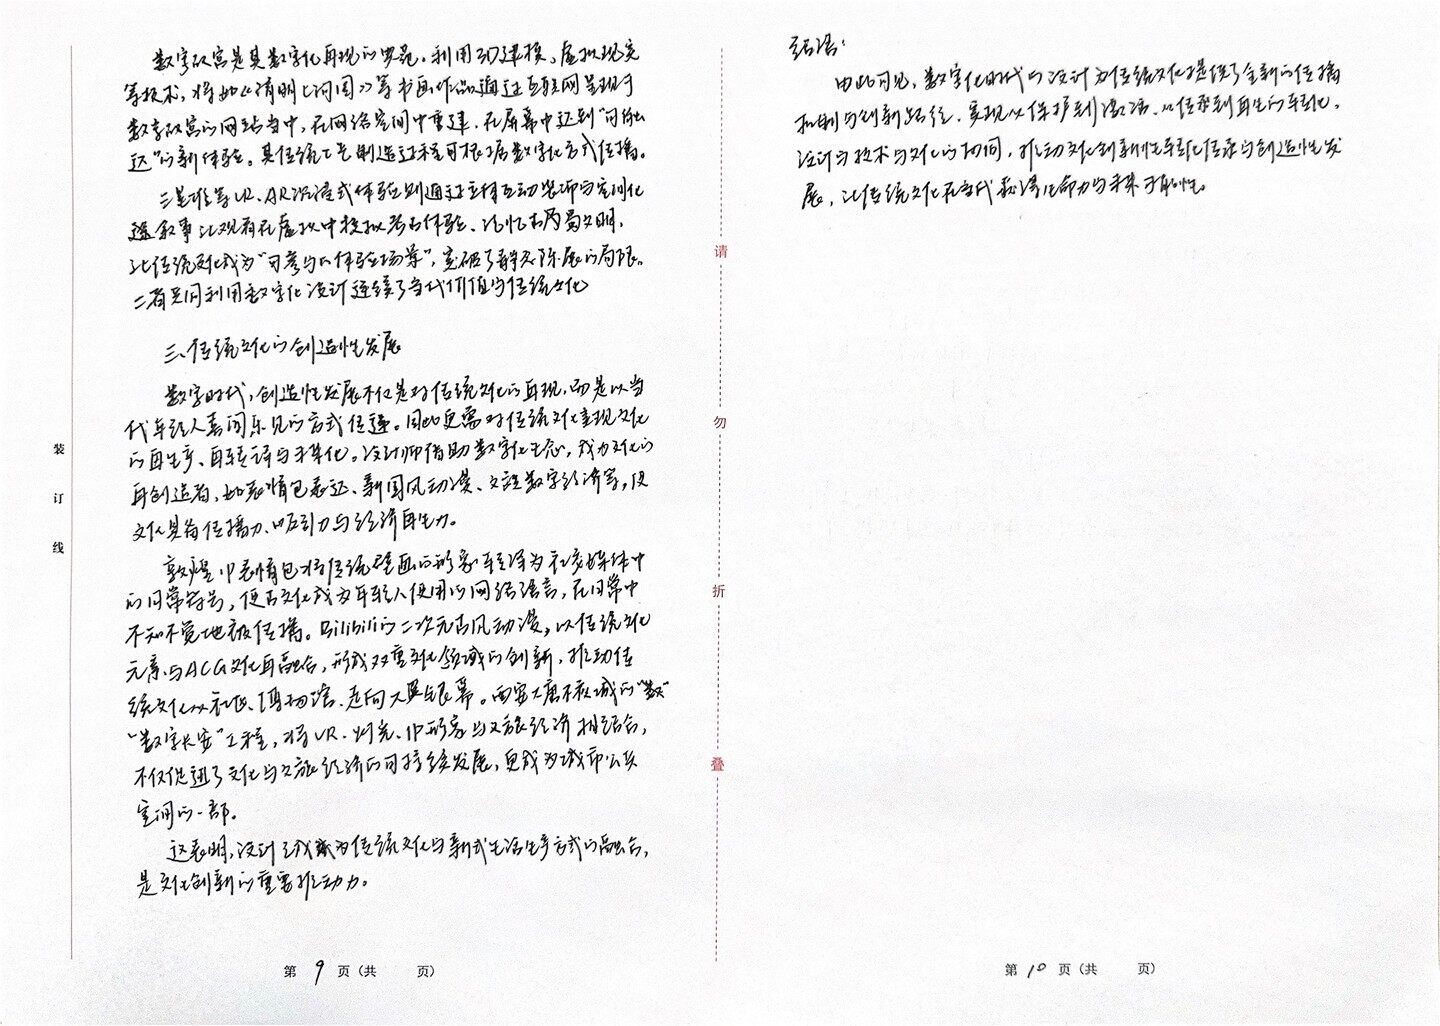 数字故宫是其数字化再现的典范。利用3D建模、虚拟现实
等技术，将如《清明上河图》等书画作品通过互联网呈现于
数字故宫的网站当中，在网络空间中重建，在屏幕中达到“可触
达”的新体验。其传统工艺制造过程可根据数字化方式传播。
三星堆等VR、AR沉浸式体验则通过主体互动装饰与空间化
叙事让观者在虚拟中模拟考古体验、记忆古蜀文明，
让传统文化成为“可参与的体验场景”，突破了静态陈展的局限。
二者共同利用数字化设计连续了当代价值与传统文化
三、传统文化的创造性发展
数字时代，创造性发展不仅是对传统文化的再现，而是以当
代年轻人喜闻乐见的方式传递。因此更需对传统文化实现文化
的再生产、再转译与未来化。设计师借助数字化生态，成为文化的
再创造者，如表情包表达、新国风动漫、文旅数字经济等，使
文化具有传播力、吸引力与经济再生力。
敦煌IP表情包将传统壁画的形象转译为社交媒体中
的日常符号，使古文化成为年轻人使用的网络语言，在日常中
不知不觉地被传播。Bilibili的二次元古风动漫，以传统文化
元素与ACG文化再融合，形成双重文化领域的创新，推动传
统文化从社区、博物馆、走向大银幕。西安大唐不夜城的“数”
“数字长安”工程，将VR、灯光、IP形象与文旅经济相结合，
不仅促进了文化与文旅经济的可持续发展，更成为城市公共
空间的一部。
这表明，设计已成为传统文化与新式生活生产方式的融合，
是文化创新的重要推动力。
第 9 页（共 页）
装
订
线
请
勿
折
叠
结语：
由此可见，数字化时代的设计为传统文化提供了全新的传播
机制与创新路径，实现从保护到激活、从传承到再生的转化。
设计与技术与文化的协同，推动文化创新性转化传承与创造性发
展，让传统文化在当代获得生命力与未来可能性。
第 10 页（共 页）